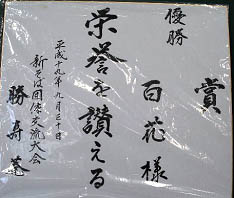 賞
優勝
百花様
栄誉を讃える
平成十九年九月三十日
新そば団体交流大会
勝寿庵